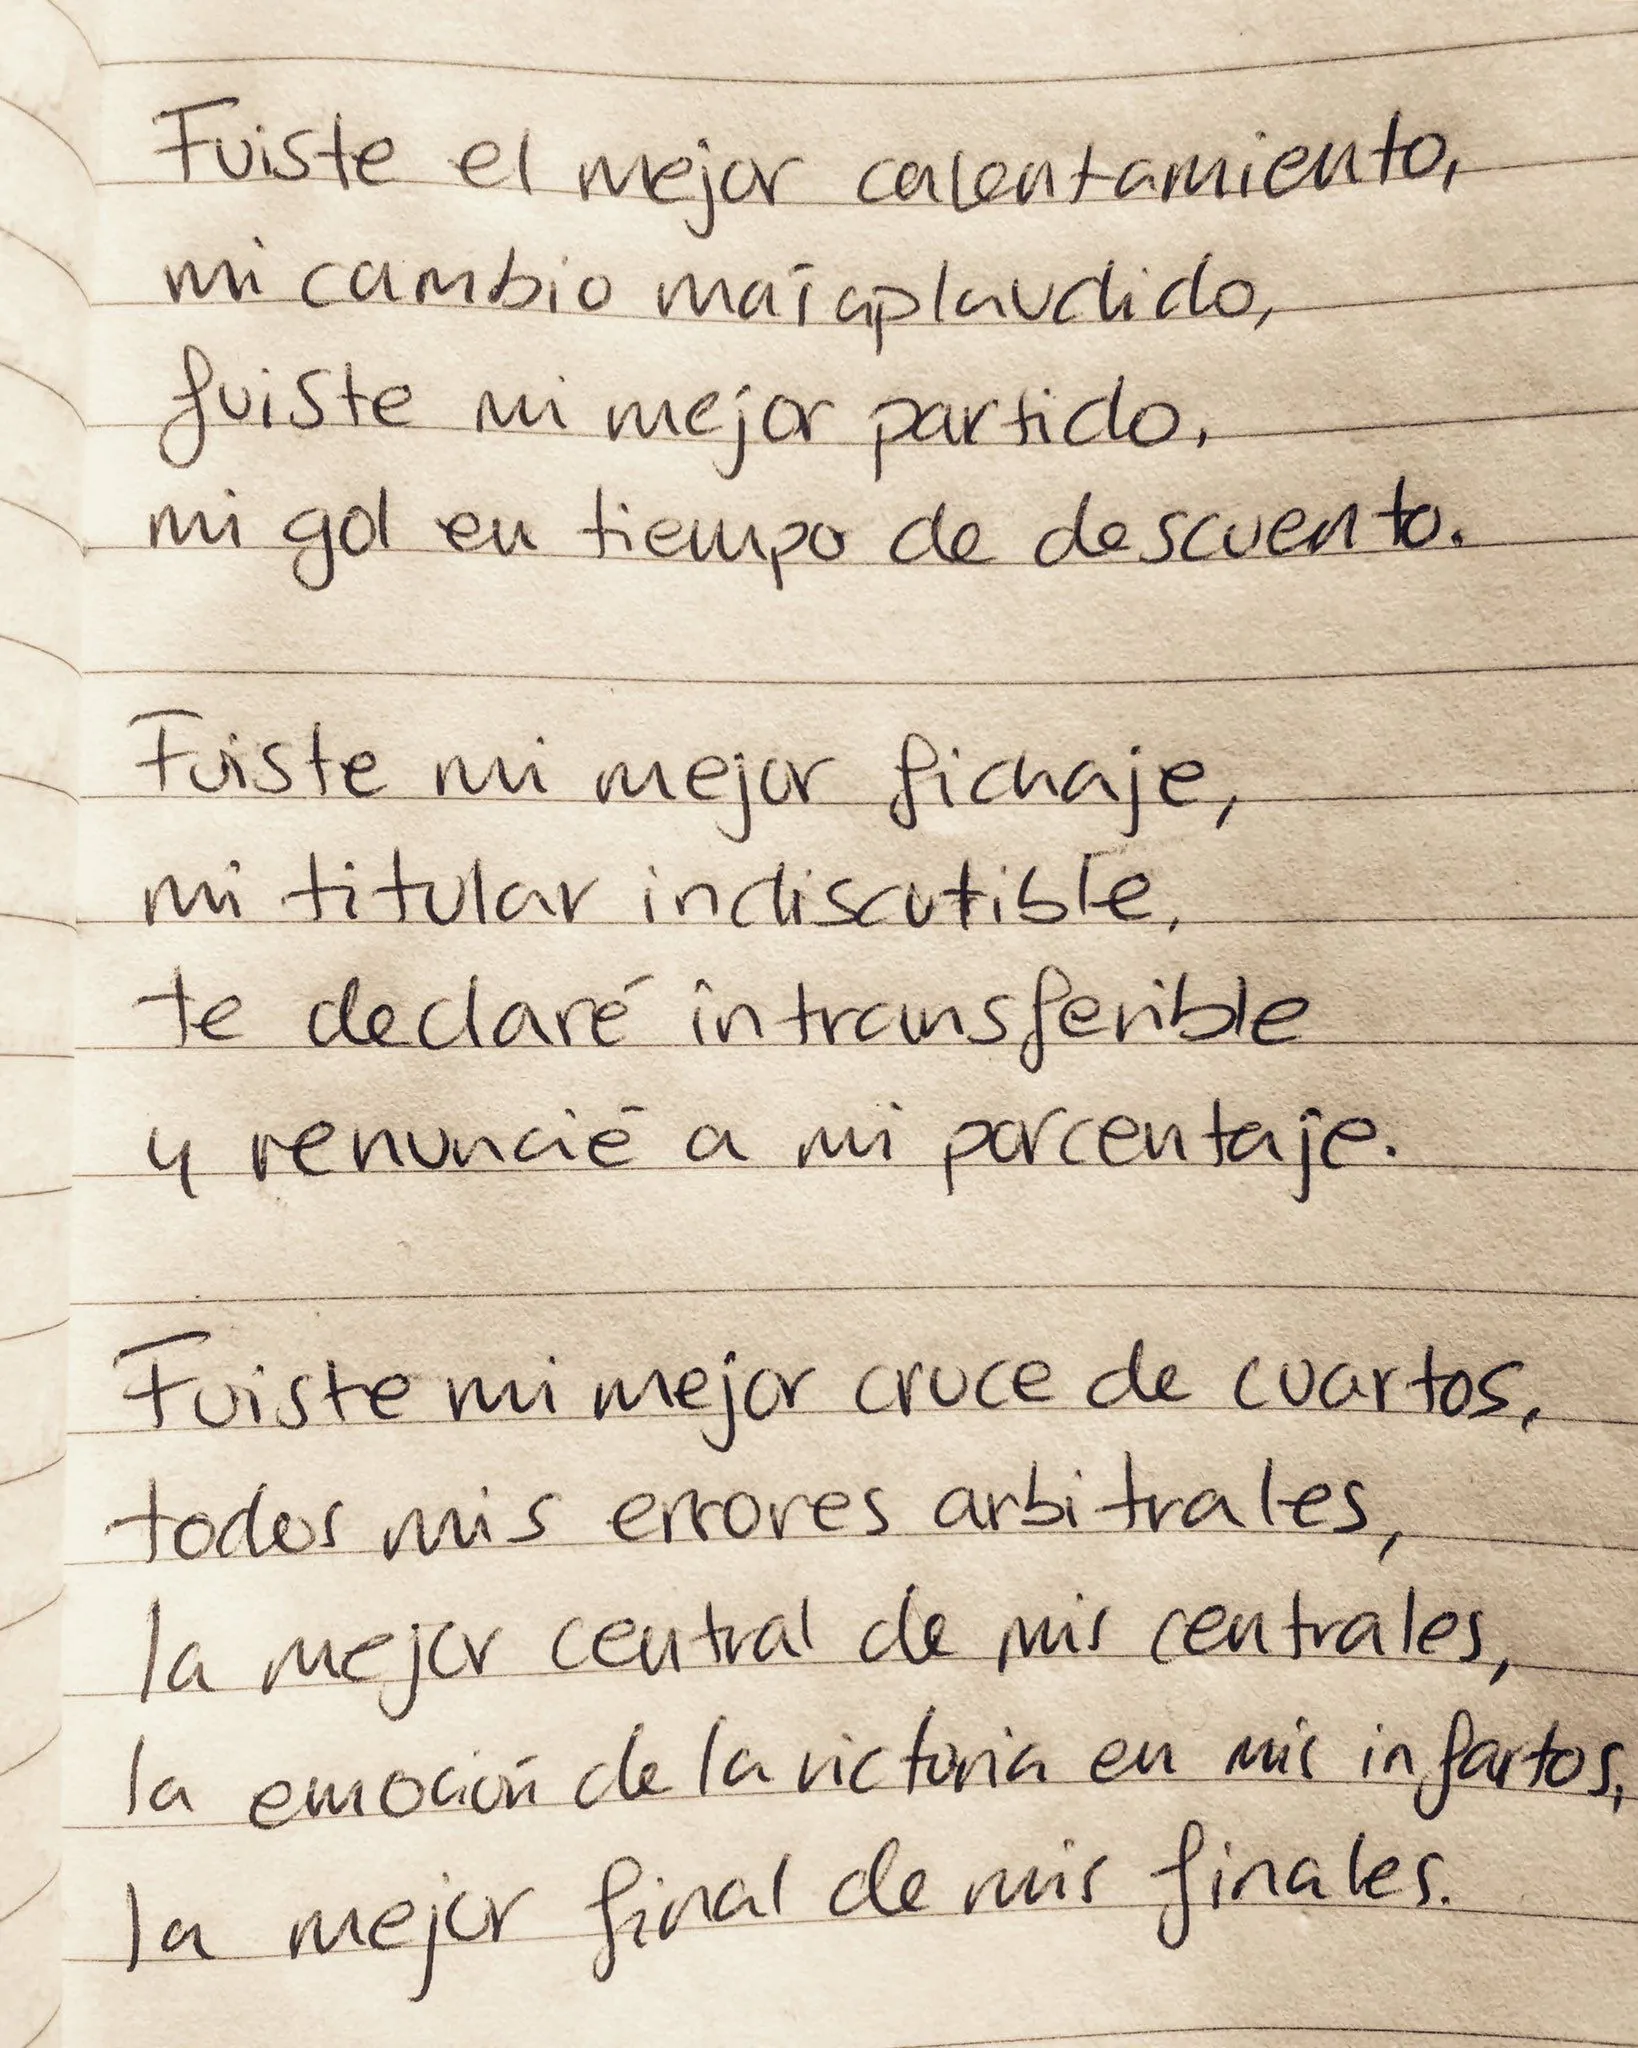 Fuiste el mejor calentamiento,
mi cambio más aplaudido,
fuiste mi mejor partido,
mi gol en tiempo de descuento.
Fuiste mi mejor fichaje,
mi titular indiscutible,
te declaré intransferible
y renuncié a mi porcentaje.
Fuiste mi mejor cruce de cuartos,
todos mis errores arbitrales,
la mejor central de mis centrales,
la emoción de la victoria en mis infartos,
la mejor final de mis finales.